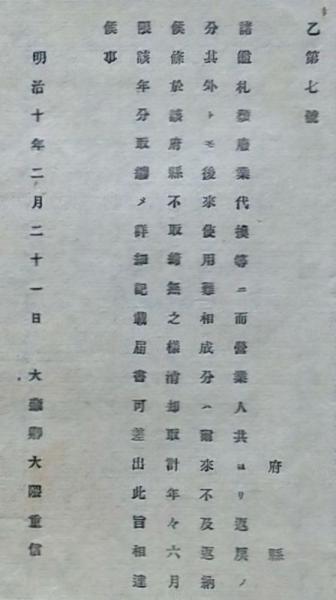 乙第七號
府縣
諸鑑札類廢業代換等ニ而營業人共ヨリ返戻ノ
分其外トモ後來使用難相成分ハ爾來不及返納
候條於該府縣不取締無之樣消却取計年々六月
限該年分取纏メ詳細記載屆書可差出此旨相達
候事
明治十年二月二十一日 大藏卿大隈重信